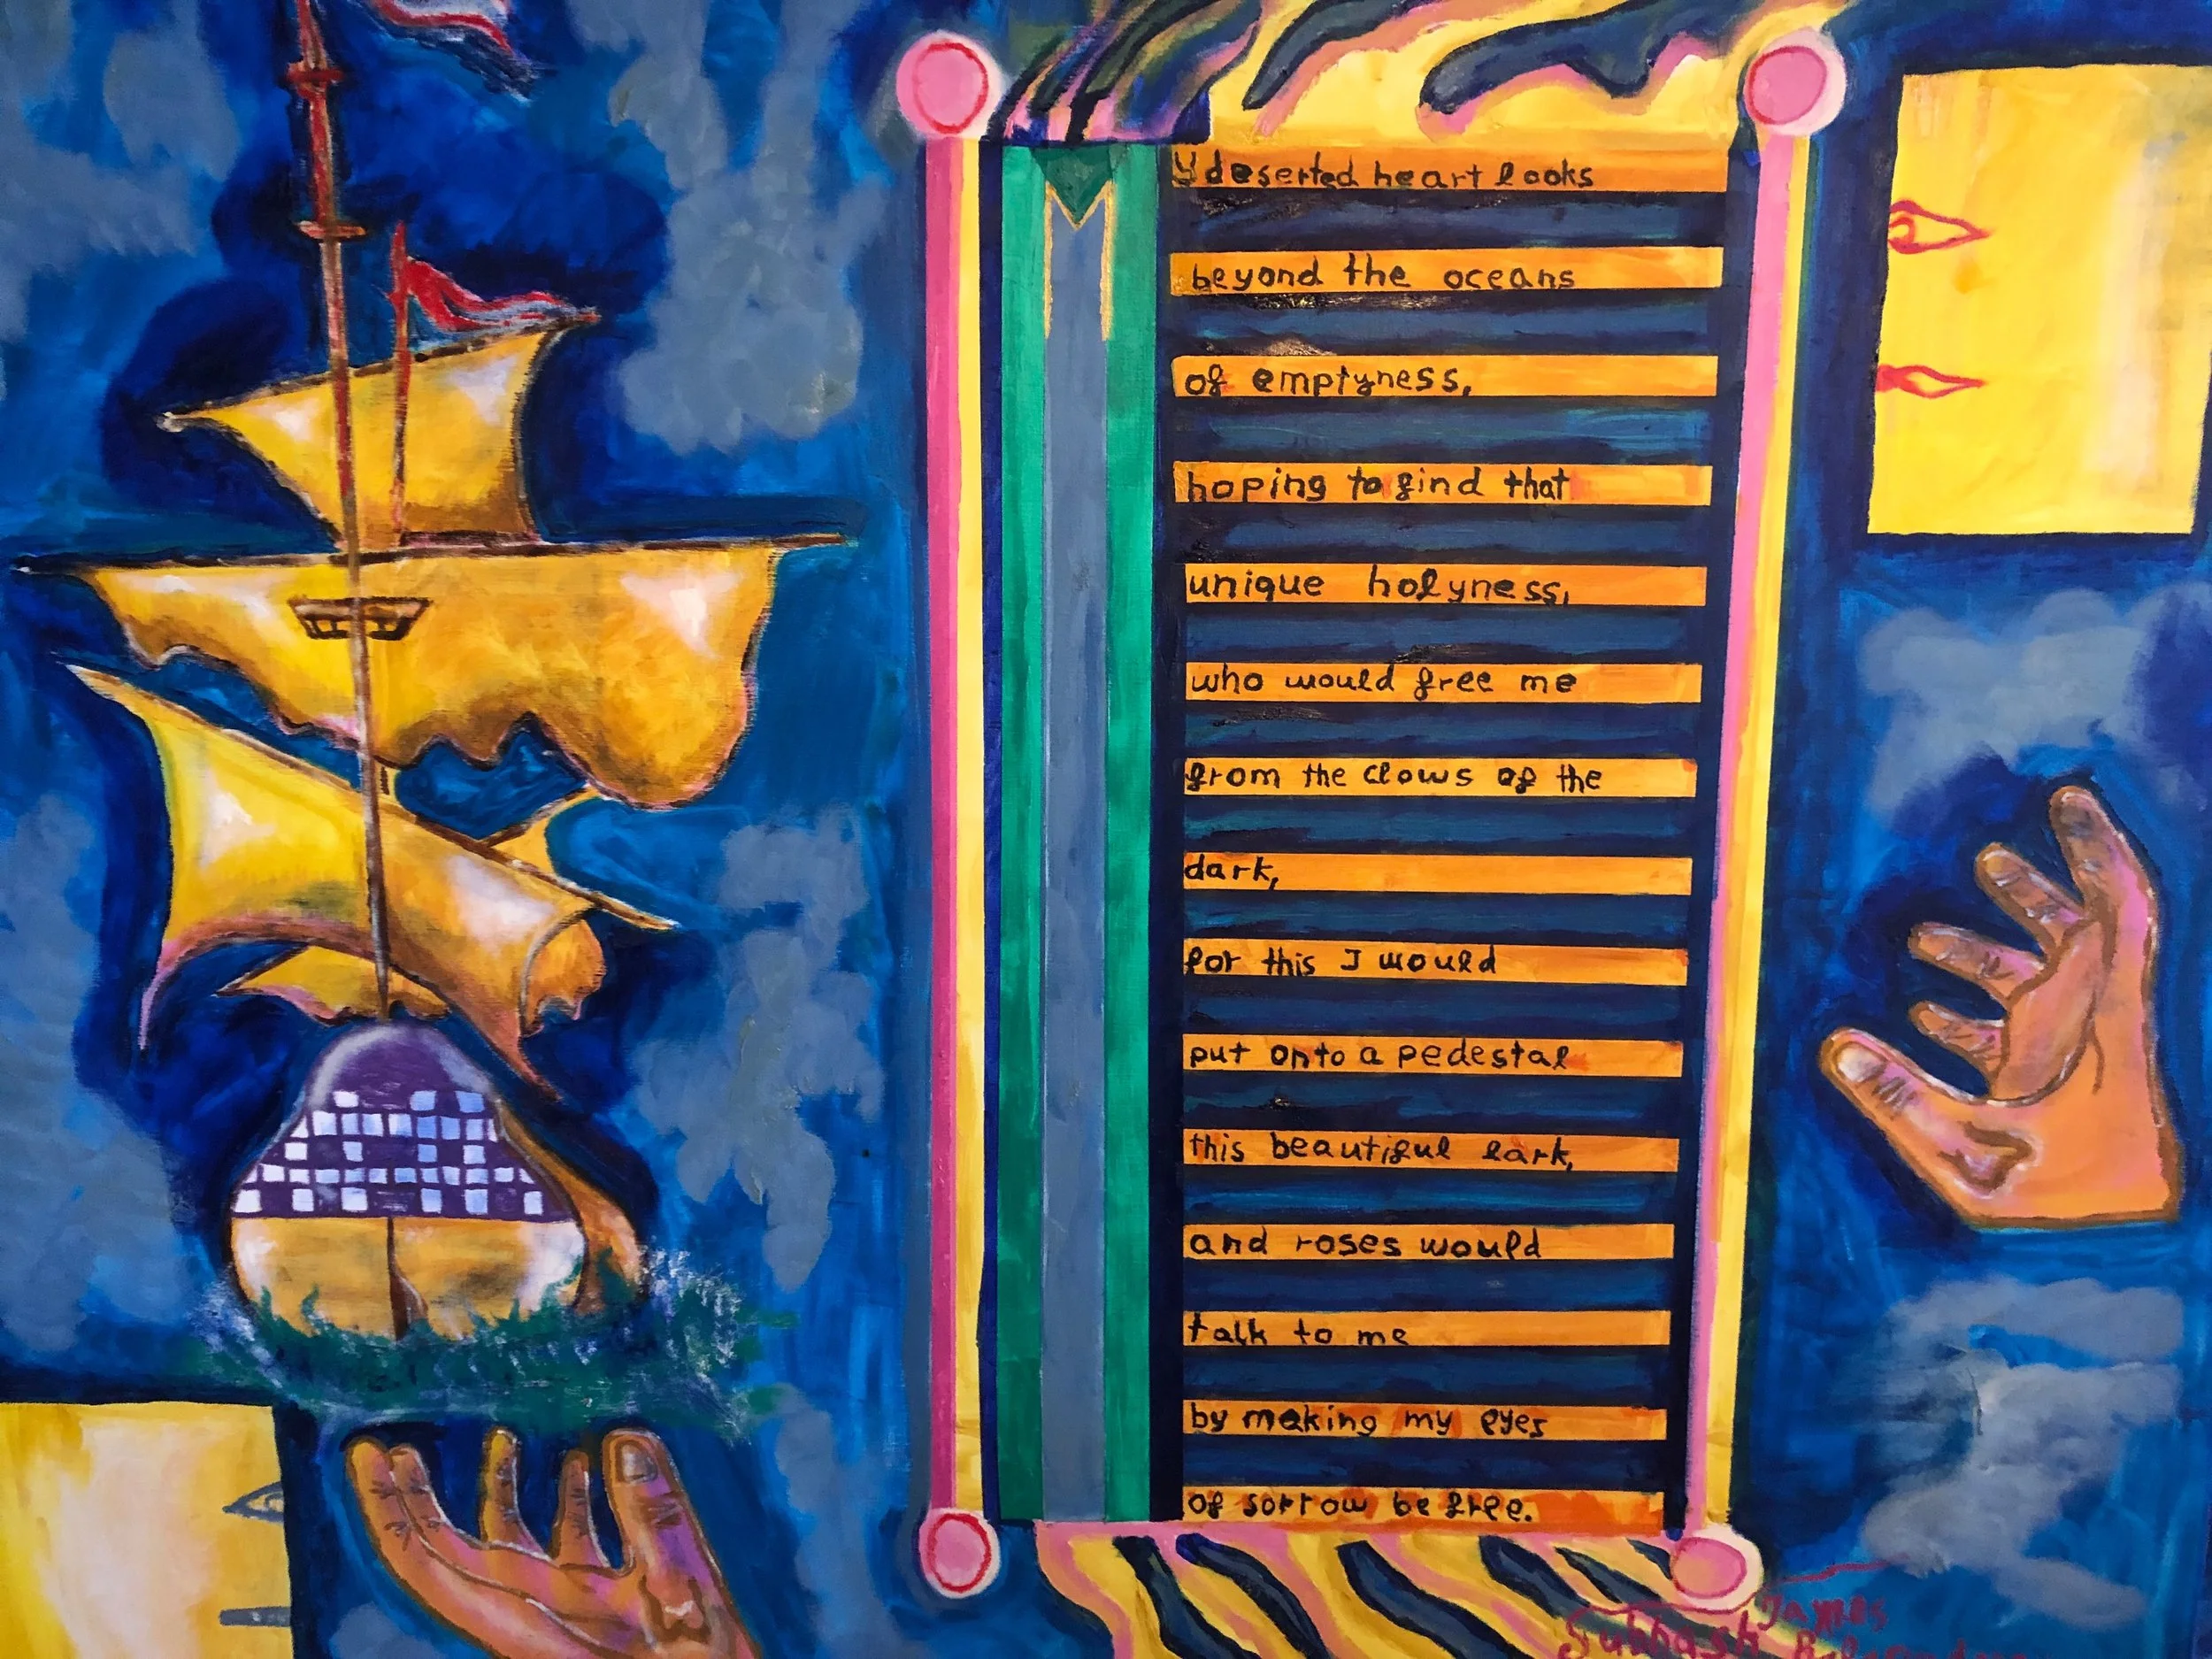 y deserted heart looks
beyond the oceans
of emptyness,
hoping to find that
unique holyness,
who would free me
from the clows of the
dark,
for this I would
put onto a pedestal
this beautiful lark,
and roses would
talk to me
by making my eyes
of sorrow be free.
James
Subhash